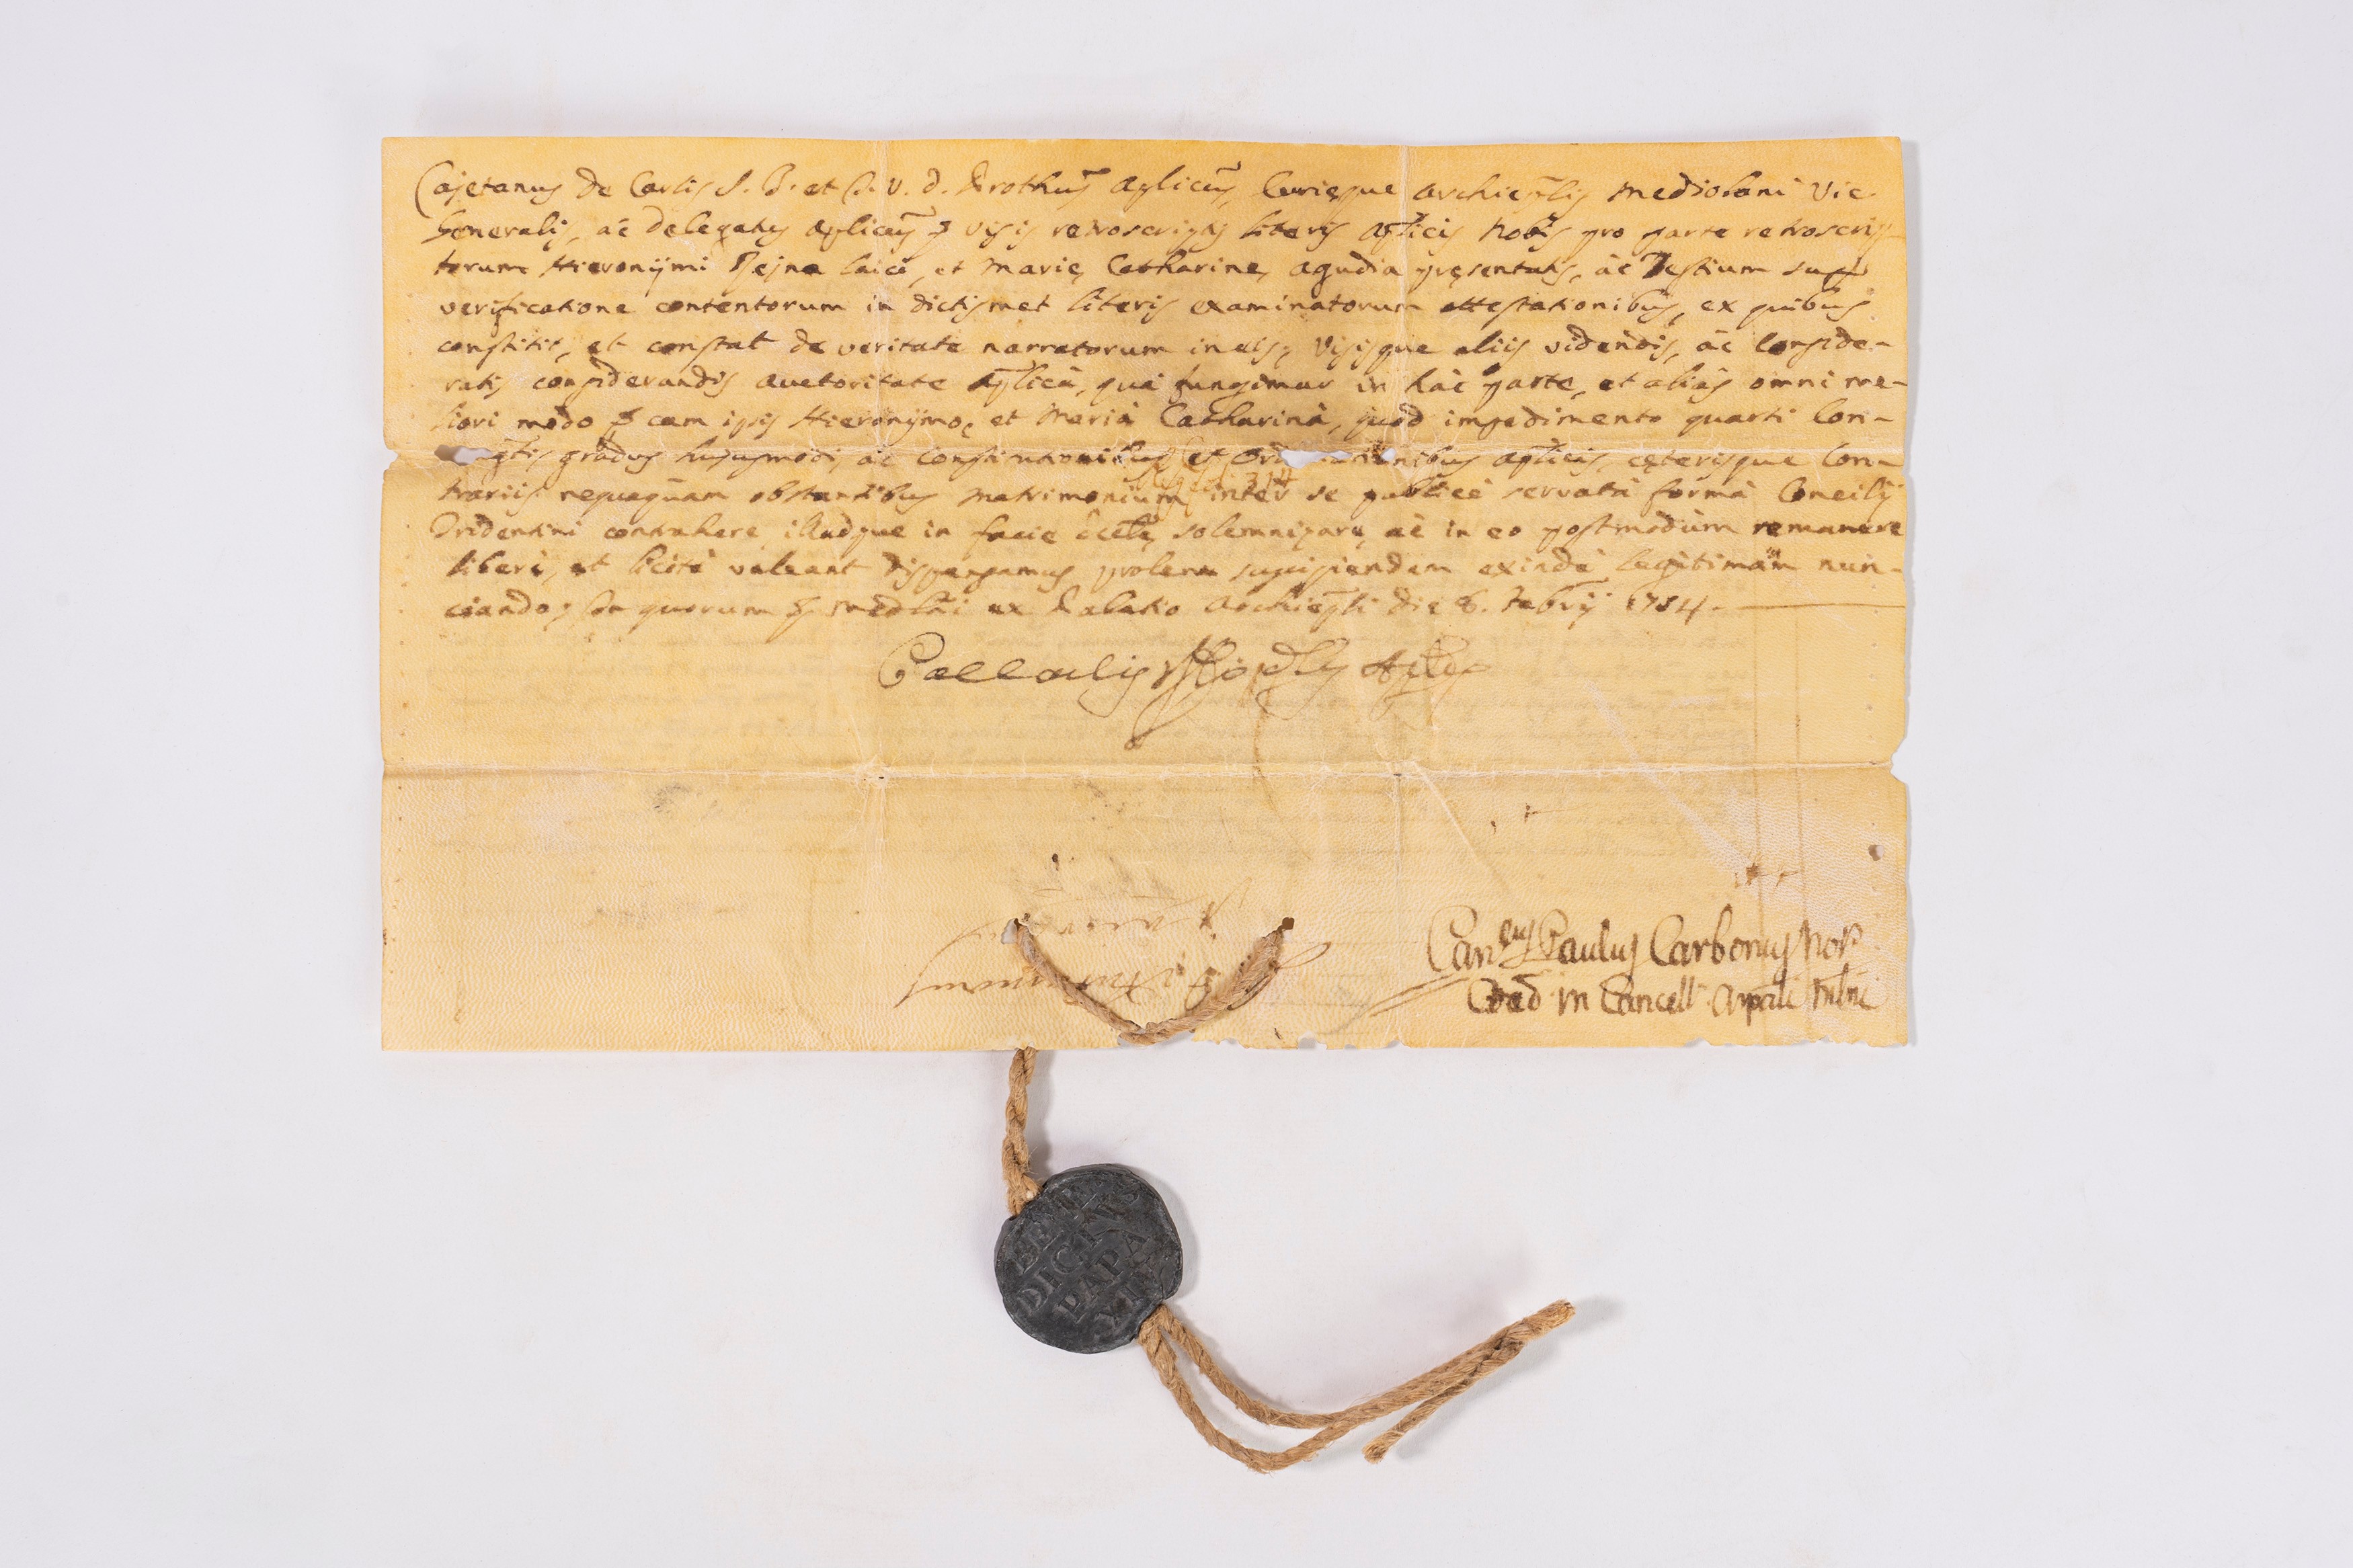 Cajetanus de Carlis S. B. et C. V. d. Prothus aplicus, Curieque Archieplis Mediolani Vic.
Generalis, ac delegatus aplicus visis retroscriptis literis aplicis Nobis pro parte retroscrip-
torum Hieronymi laici, et Marie Catharine, Agudia presentatis, ac Testium
verificatione contentorum in dictismet literis examinatorum attestationibus, ex quibus
constitit, et constat de veritate narratorum in eis, Visisque aliis videndis, ac Conside-
ratis considerandis auctoritate aplica, qua fungimur in hac parte, et alias omni me-
liori modo cum ipsis Hieronymo, et Maria Catharina, quod impedimento quarti Con-
gradus hujusmodi, ac constitutionibus, et aplicis, ceterisque Con-
trariis nequaquam obstantibus Matrimonium inter se publice servata forma Concilij
Tridentini contrahere, illudque in facie Eccle, solemnizare, ac in eo postmodum remanere
libere, et licite valeant dispensamus, prolem suscipiendam exinde legitimam nun-
ciando; In quorum Medlni ex Palatio Archiepli die 6. Febrij 1754.
Can.cus Paulus Carbonus Not.
Coad in Cancell
BENE
DICTVS
PAPA
XIV